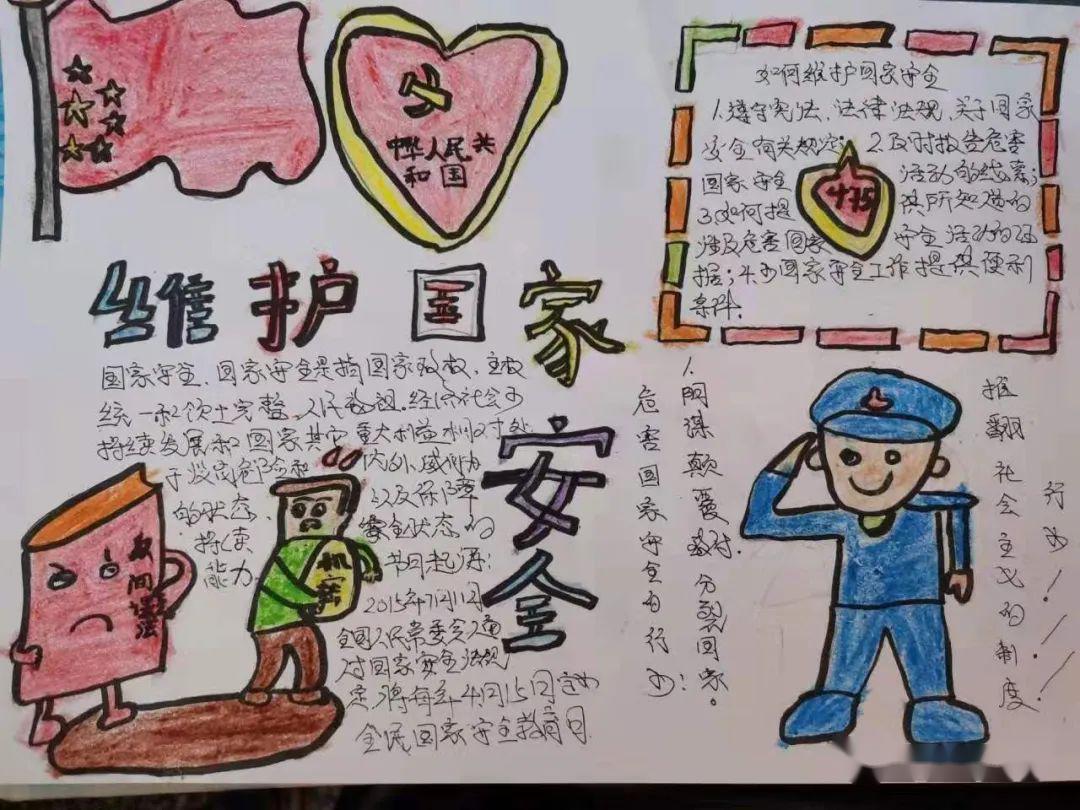 中华人民共
和国
维护国家
安全
如何维护国家安全
1.遵守宪法、法律法规,关于国家
安全有关规定;2.及时报告危害
国家安全活动的线索;
3.如何提供所知道的
涉及危害国家安全活动的证
据;4.为国家安全工作提供便利
条件.
415
国家安全,国家安全是指国家政权、主权
统一和领土完整、人民福祉.经济社会可
持续发展和国家其它重大利益相对处
于没有危险和
内外威胁
的状态
以及保障
安全状态的
持续
能力.
节日起源:
2015年7月1日
全国人民常委会通
过国家安全法规
定,将每年4月15日定为
全民国家安全教育日
机密
危害国家安全的行为:
1.阴谋颠覆政府.分裂国家。
推翻社会主义的制度!
行为!